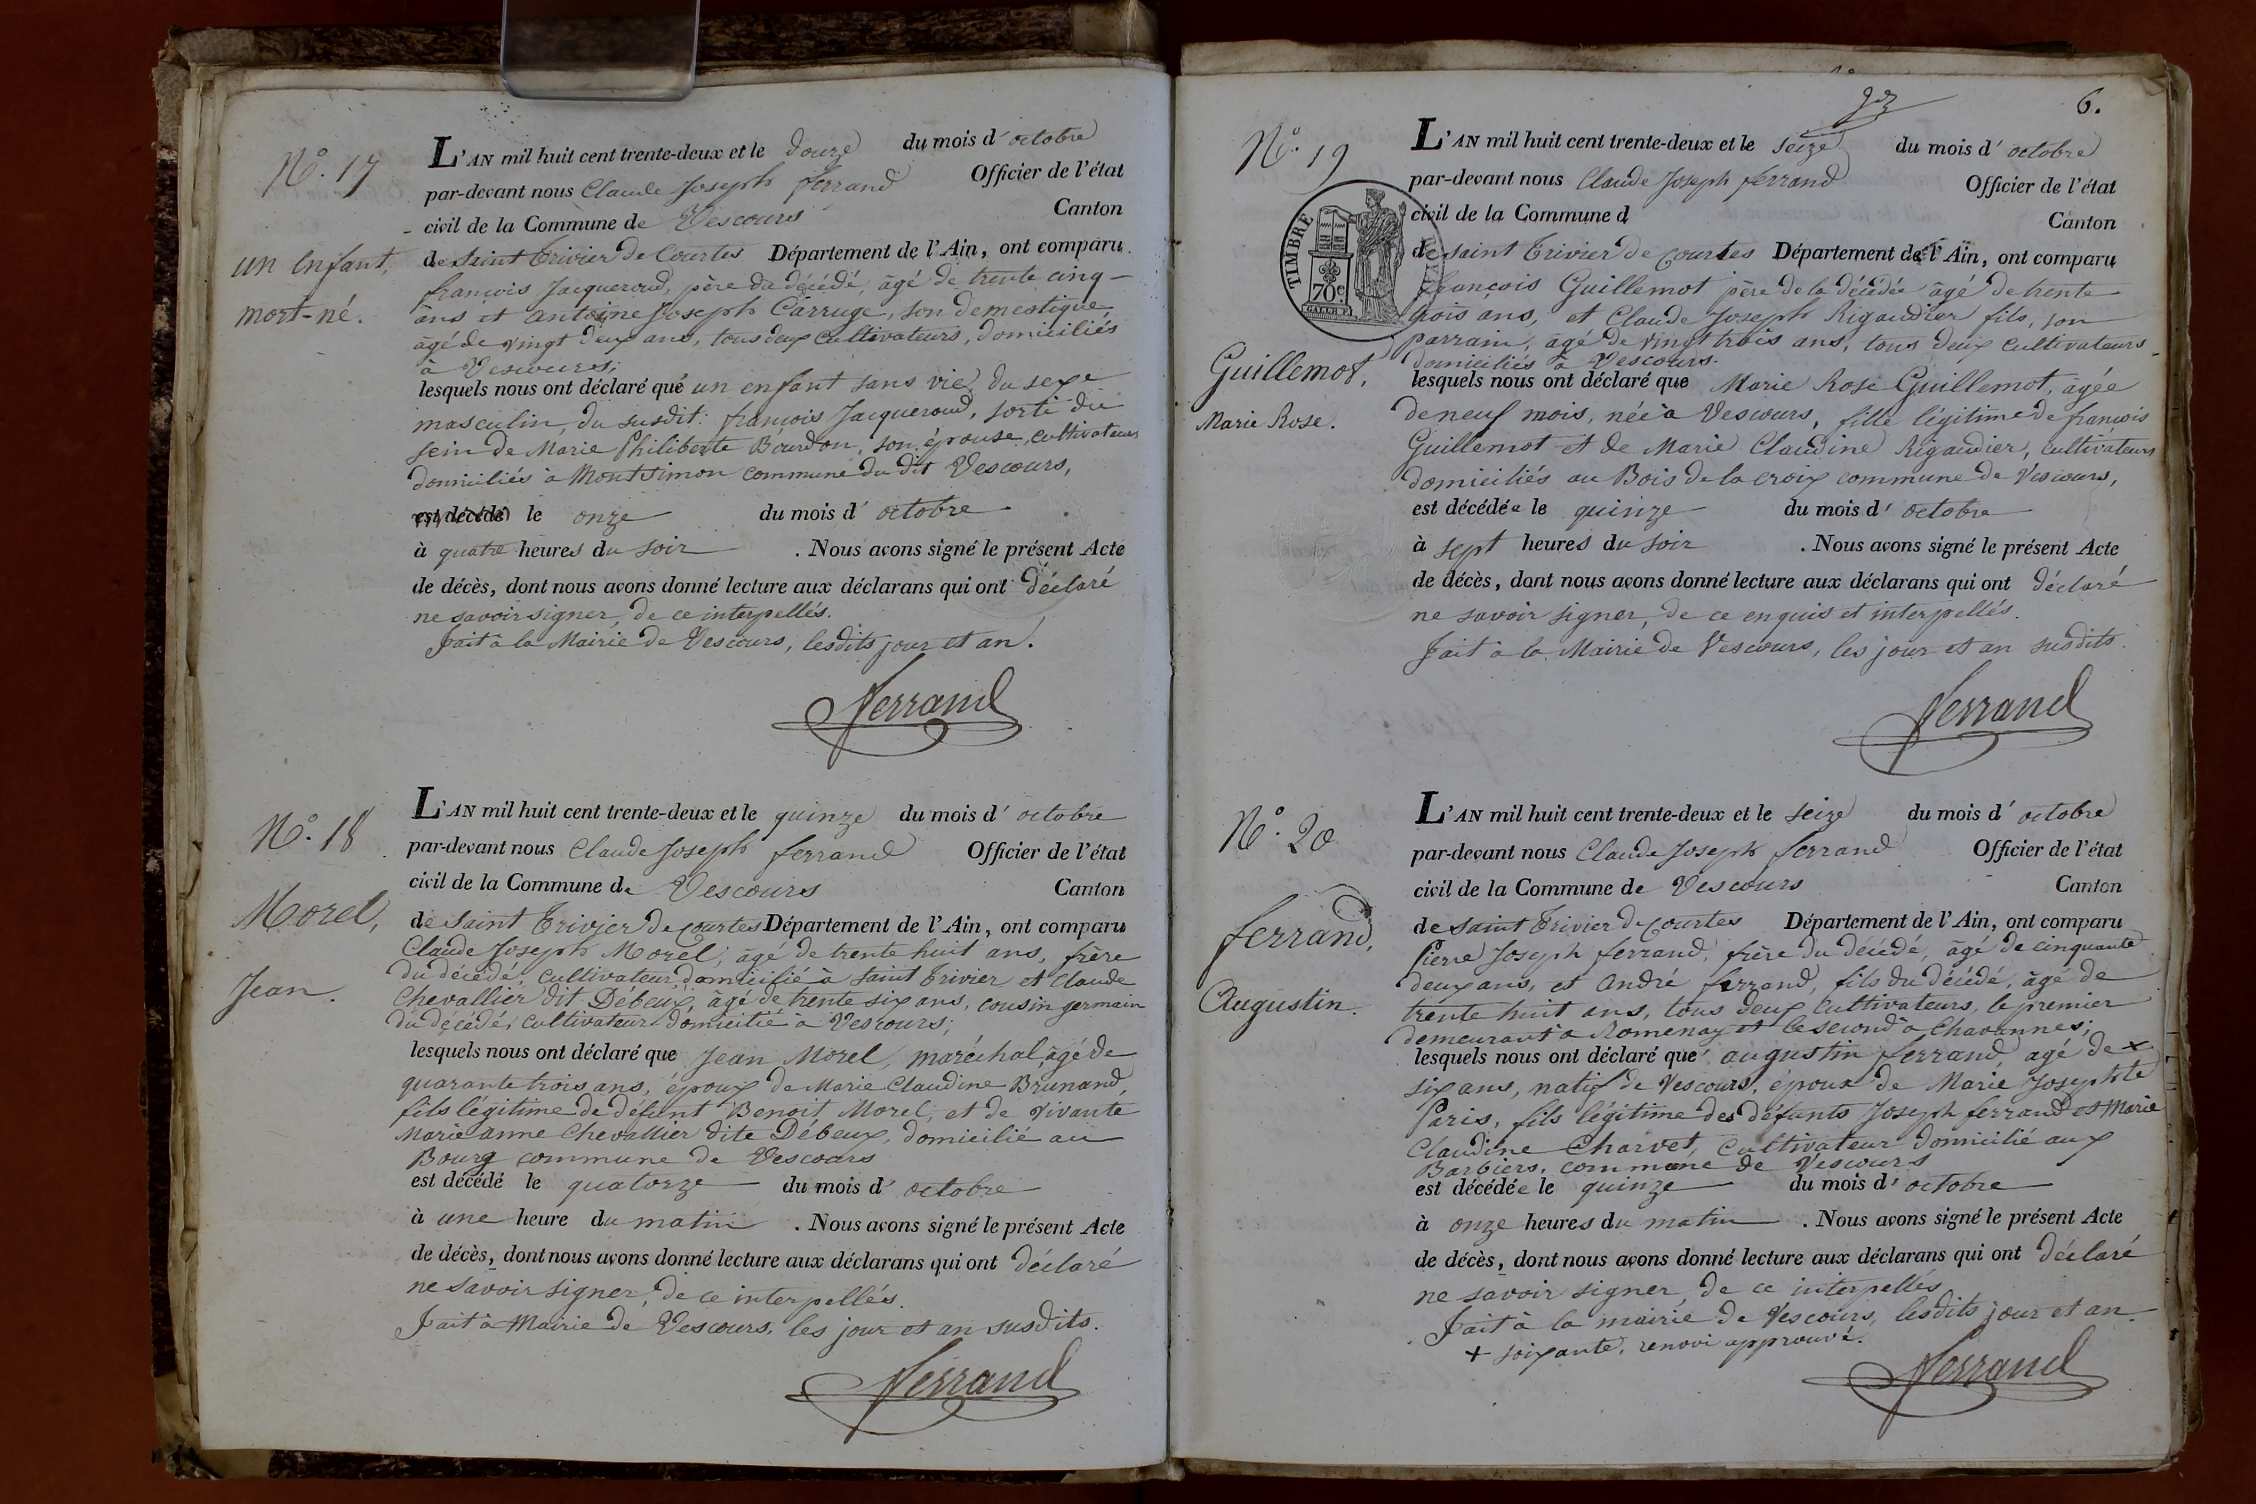 N.° 17
un enfant,
mort-né.
L'AN mil huit cent trente-deux et le douze du mois d'octobre
par-devant nous Claude Joseph ferrand Officier de l'état
civil de la Commune de Vescours Canton
de Saint Trivier de Courtes Département de l'Ain, ont comparu
françois Jacqueroud, père du décédé, âgé de trente cinq
ans et antoine Joseph Carruge, son domestique,
âgé de vingt deux ans, tous deux cultivateurs, domiciliés
à Vescours;
lesquels nous ont déclaré que un enfant sans vie, du sexe
masculin, du susdit: françois Jacqueroud, sorti du
sein de Marie Philiberte Bourdon, son épouse, cultivateurs
domiciliés à Montsimon commune du dit Vescours,
est décédé le onze du mois d'octobre
à quatre heures du soir. Nous avons signé le présent Acte
de décès, dont nous avons donné lecture aux déclarans qui ont déclaré
ne savoir signer, de ce interpellés.
Fait à la Mairie de Vescours, lesdits jour et an.
ferrand
N.° 18
Morel,
Jean.
L'AN mil huit cent trente-deux et le quinze du mois d'octobre
par-devant nous Claude Joseph ferrand Officier de l'état
civil de la Commune de Vescours Canton
de Saint Trivier de Courtes Département de l'Ain, ont comparu
Claude Joseph Morel, âgé de trente huit ans, frère
du décédé, cultivateur domicilié à Saint Trivier et Claude
Chevallier dit Débeux, âgé de trente six ans, cousin germain
du décédé, cultivateur domicilié à Vescours;
lesquels nous ont déclaré que Jean Morel, maréchal, âgé de
quarante trois ans, époux de Marie Claudine Brunand,
fils légitime de défunt Benoit Morel, et de vivante
Marie anne Chevallier dite Débeux, domicilié au
Bourg commune de Vescours
est décédé le quatorze du mois d'octobre
à une heure du matin. Nous avons signé le présent Acte
de décès, dont nous avons donné lecture aux déclarans qui ont déclaré
ne savoir signer, de ce interpellés.
Fait à Mairie de Vescours, les jour et an susdits.
ferrand
6.
N.° 19
TIMBRE
70c
Guillemot,
Marie Rose.
L'AN mil huit cent trente-deux et le seize du mois d'octobre
par-devant nous Claude Joseph ferrand Officier de l'état
civil de la Commune d Canton
de Saint Trivier de Courtes Département de l'Ain, ont comparu
françois Guillemot père de la décédée âgé de trente
trois ans, et Claude Joseph Rigaudier fils, son
parrain, âgé de vingt trois ans, tous deux cultivateurs
domiciliés à Vescours.
lesquels nous ont déclaré que Marie Rose Guillemot, âgée
de neuf mois, née à Vescours, fille légitime de françois
Guillemot et de Marie Claudine Rigaudier, cultivateurs
domiciliés au Bois de la croix commune de Vescours,
est décédée le quinze du mois d'octobre
à sept heures du soir. Nous avons signé le présent Acte
de décès, dont nous avons donné lecture aux déclarans qui ont déclaré
ne savoir signer, de ce enquis et interpellés.
Fait à la Mairie de Vescours, les jour et an susdits.
ferrand
N.° 20
ferrand,
Augustin.
L'AN mil huit cent trente-deux et le seize du mois d'octobre
par-devant nous Claude Joseph ferrand Officier de l'état
civil de la Commune de Vescours Canton
de Saint Trivier de Courtes Département de l'Ain, ont comparu
Pierre Joseph ferrand, frère du décédé, âgé de cinquante
deux ans, et André ferrand, fils du décédé, âgé de
trente huit ans, tous deux cultivateurs, le premier
demeurant à Romenay et le second à Chavannes;
lesquels nous ont déclaré que augustin ferrand agé de +
six ans, natif de Vescours, époux de Marie Josephte
Paris, fils légitime des défunts Joseph ferrand et Marie
Claudine Charvet, cultivateur domicilié aux
Barbiers, commune de Vescours
est décédée le quinze du mois d'octobre
à onze heures du matin. Nous avons signé le présent Acte
de décès, dont nous avons donné lecture aux déclarans qui ont déclaré
ne savoir signer, de ce interpellés
Fait à la mairie de Vescours, lesdits jour et an.
+ soixante, renvoi approuvé.
ferrand